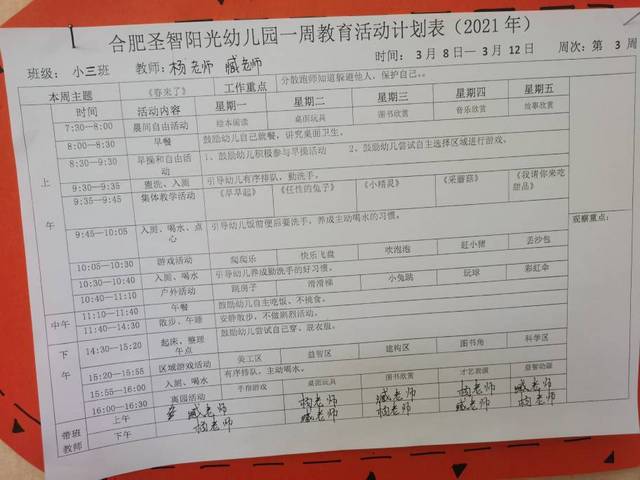 合肥圣智阳光幼儿园一周教育活动计划表（2021年）
班级：小三班 教师：杨老师 臧老师 时间：3月8日—3月12日 周次：第 3 周
本周主题 《春来了》 工作重点 分散跑师知道躲避他人，保护自己。
时间 活动内容 星期一 星期二 星期三 星期四 星期五
上午
7:30—8:00 晨间自由活动 绘本阅读 桌面玩具 图书欣赏 音乐欣赏 故事欣赏
8:00—8:30 早餐 鼓励幼儿自己就餐，讲究桌面卫生。
8:30—9:30 早操和自由活动 1、鼓励幼儿积极参与早操活动 2、鼓励幼儿尝试自主选择区域进行游戏。
9:30—9:35 盥洗、入厕 引导幼儿有序排队，勤洗手。
9:35—9:45 集体教学活动 《早早起》 《任性的兔子》 《小精灵》 《采蘑菇》 《我请你来吃甜品》
9:45—10:05 入厕、喝水、点心 引导幼儿饭前便后要洗手，养成主动喝水的习惯。
观察重点：
10:05—10:30 游戏活动 爬爬乐 快乐飞盘 吹泡泡 赶小猪 丢沙包
10:30—10:40 入厕、喝水 引导幼儿养成勤洗手的好习惯。
10:40—11:10 户外活动 跳房子 滑滑梯 小兔跳 玩球 彩虹伞
11:10—11:40 午餐 鼓励幼儿自主吃饭、不挑食。
中午 11:40—14:30 散步、午睡 安静散步，不做剧烈活动。
下午
14:30—15:20 起床、整理午点 鼓励幼儿尝试自己穿、混衣服。
15:20—15:55 区域游戏活动 美工区 益智区 建构区 图书角 科学区
15:55—16:00 入厕、喝水 有序排队，主动喝水。
16:00—16:30 离园活动 手指游戏 桌面玩具 图书欣赏 才艺表演 益智动画
带班教师
上午 臧老师 杨老师 臧老师 杨老师 臧老师
下午 杨老师 臧老师 杨老师 臧老师 杨老师